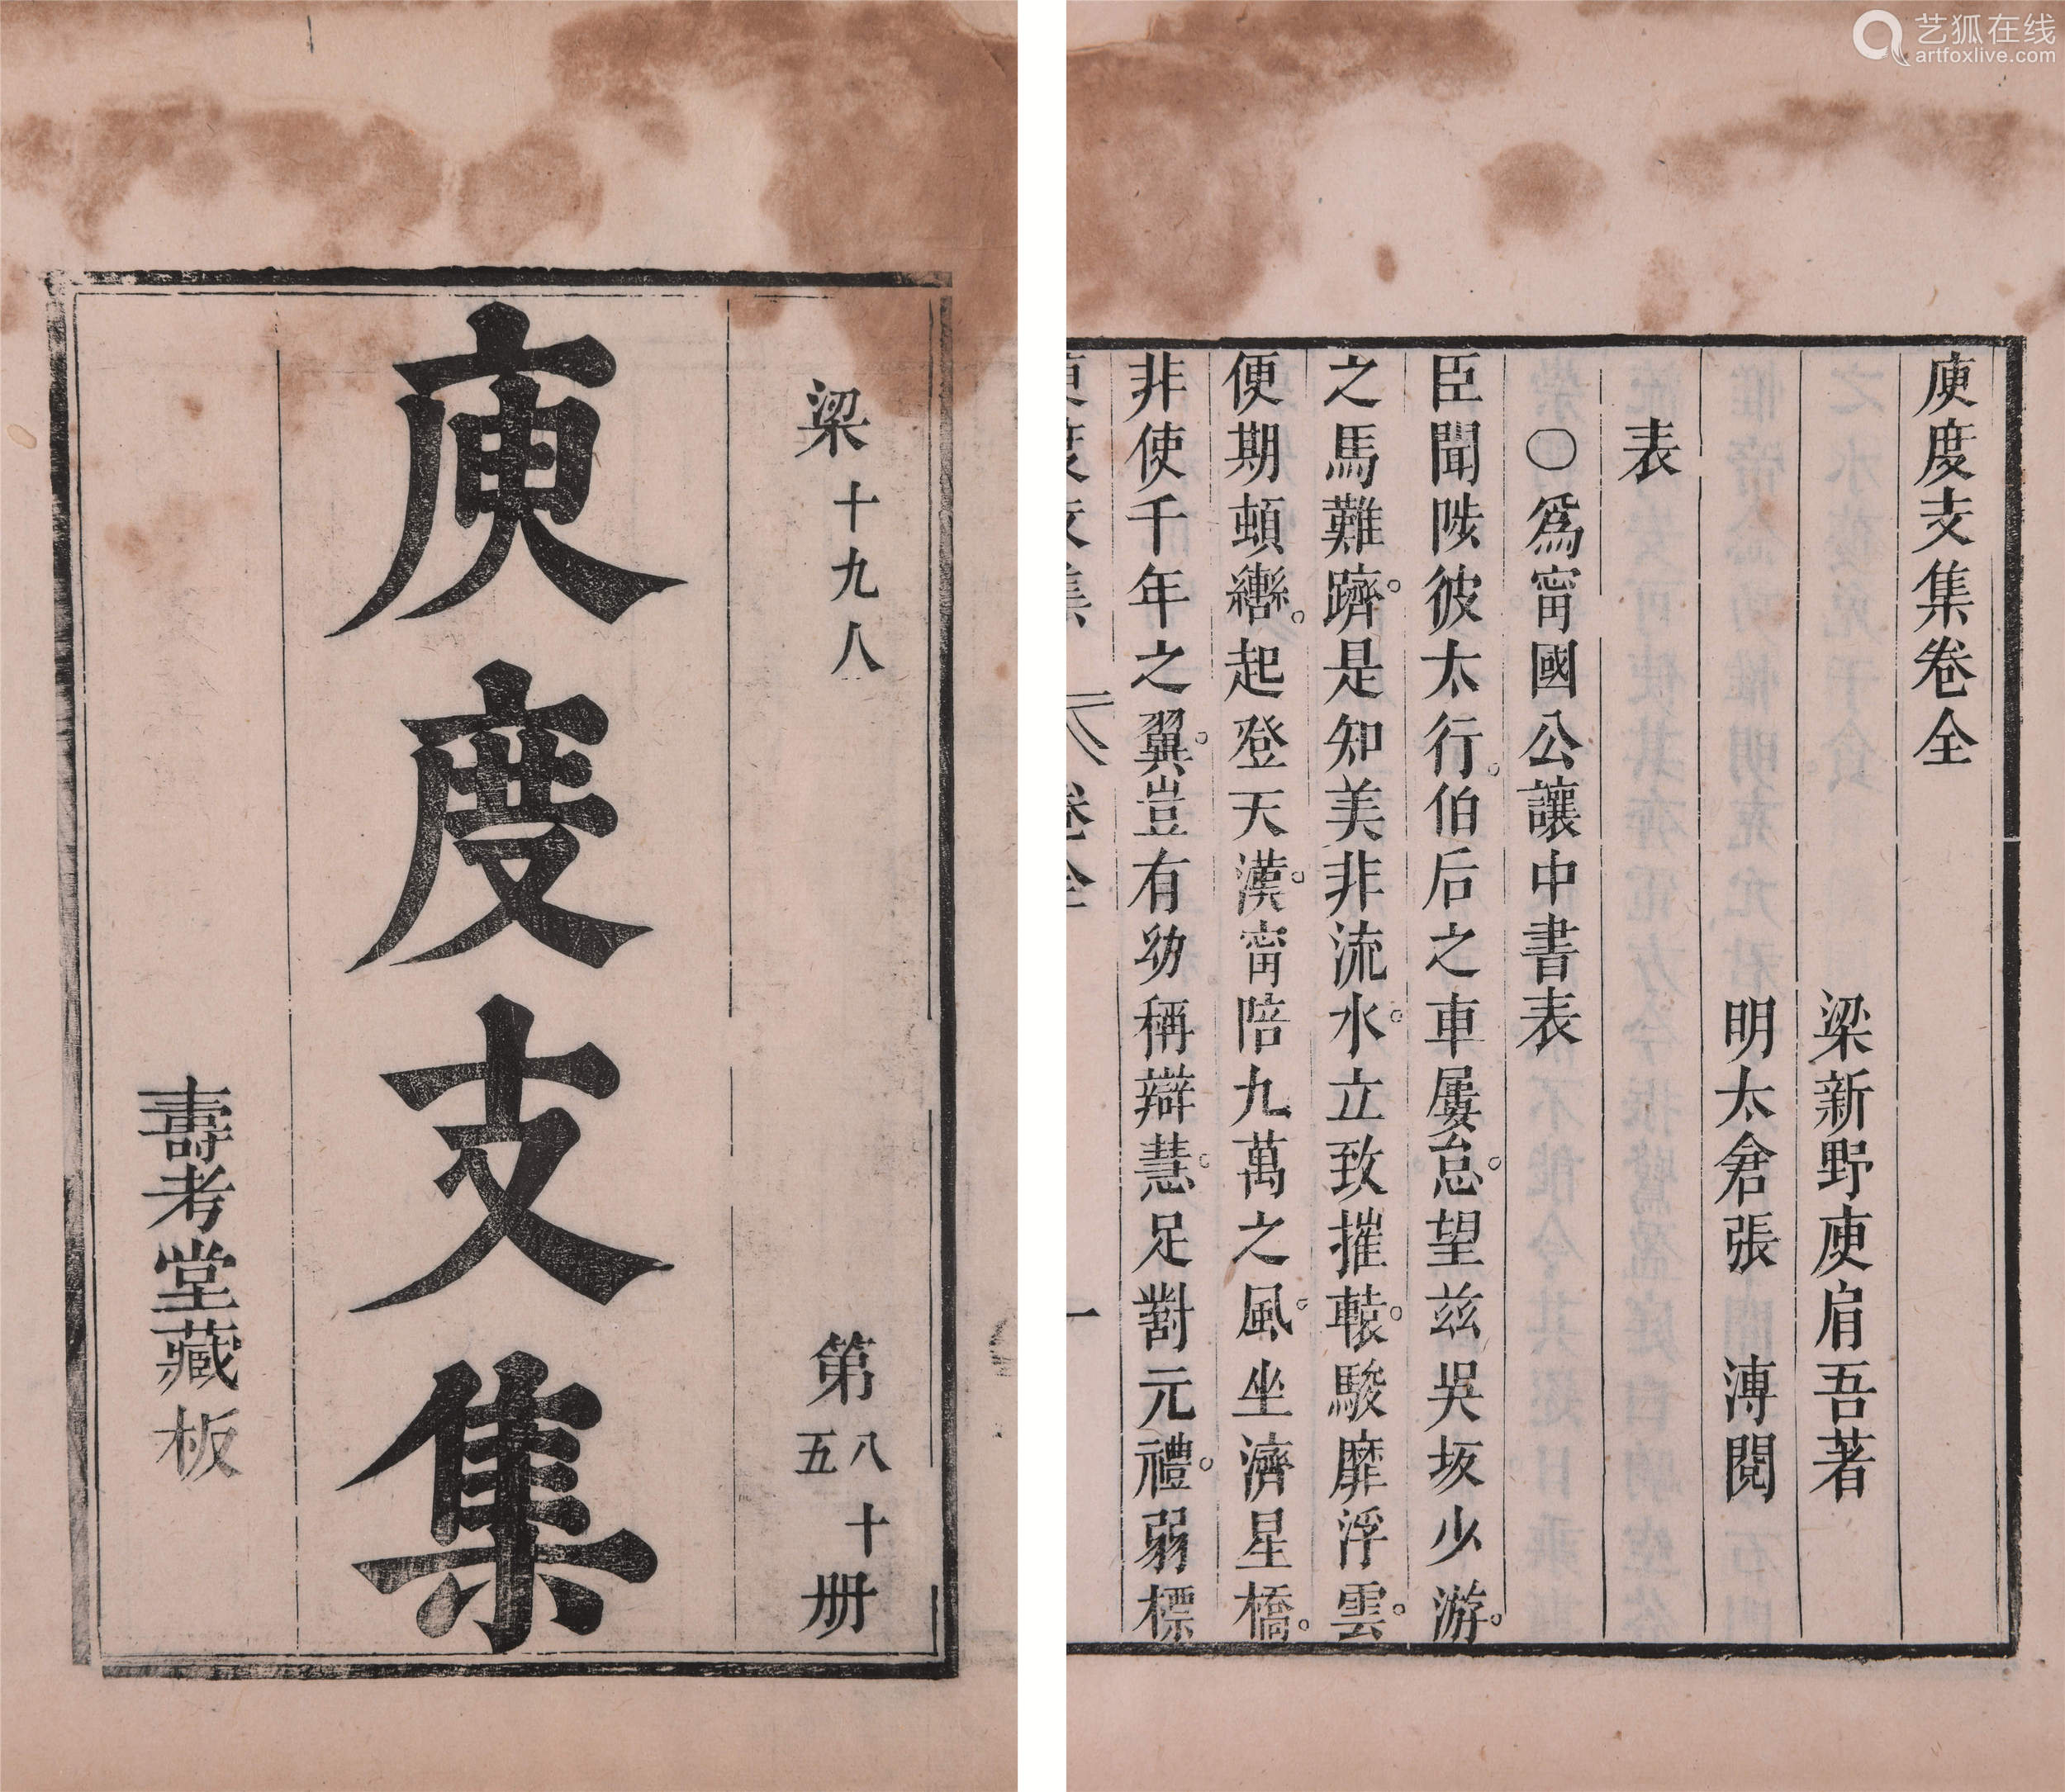 艺狐在线
artfoxlive.com
梁十九八 第八十五册
庾度支集
壽考堂藏板
庾度支集卷全
梁新野庾肩吾著
明太倉張溥閱
表
○爲甯國公讓中書表
臣聞陟彼太行。伯后之車屢怠。望兹吳坂少游。
之馬難躋。是知美非流水。立致摧轅。駿靡浮雲。
便期頓轡。起登天漢。甯陪九萬之風。坐濟星橋。
非使千年之翼。豈有幼稱辯慧。足對元禮。弱標
庾度支集 卷全 一